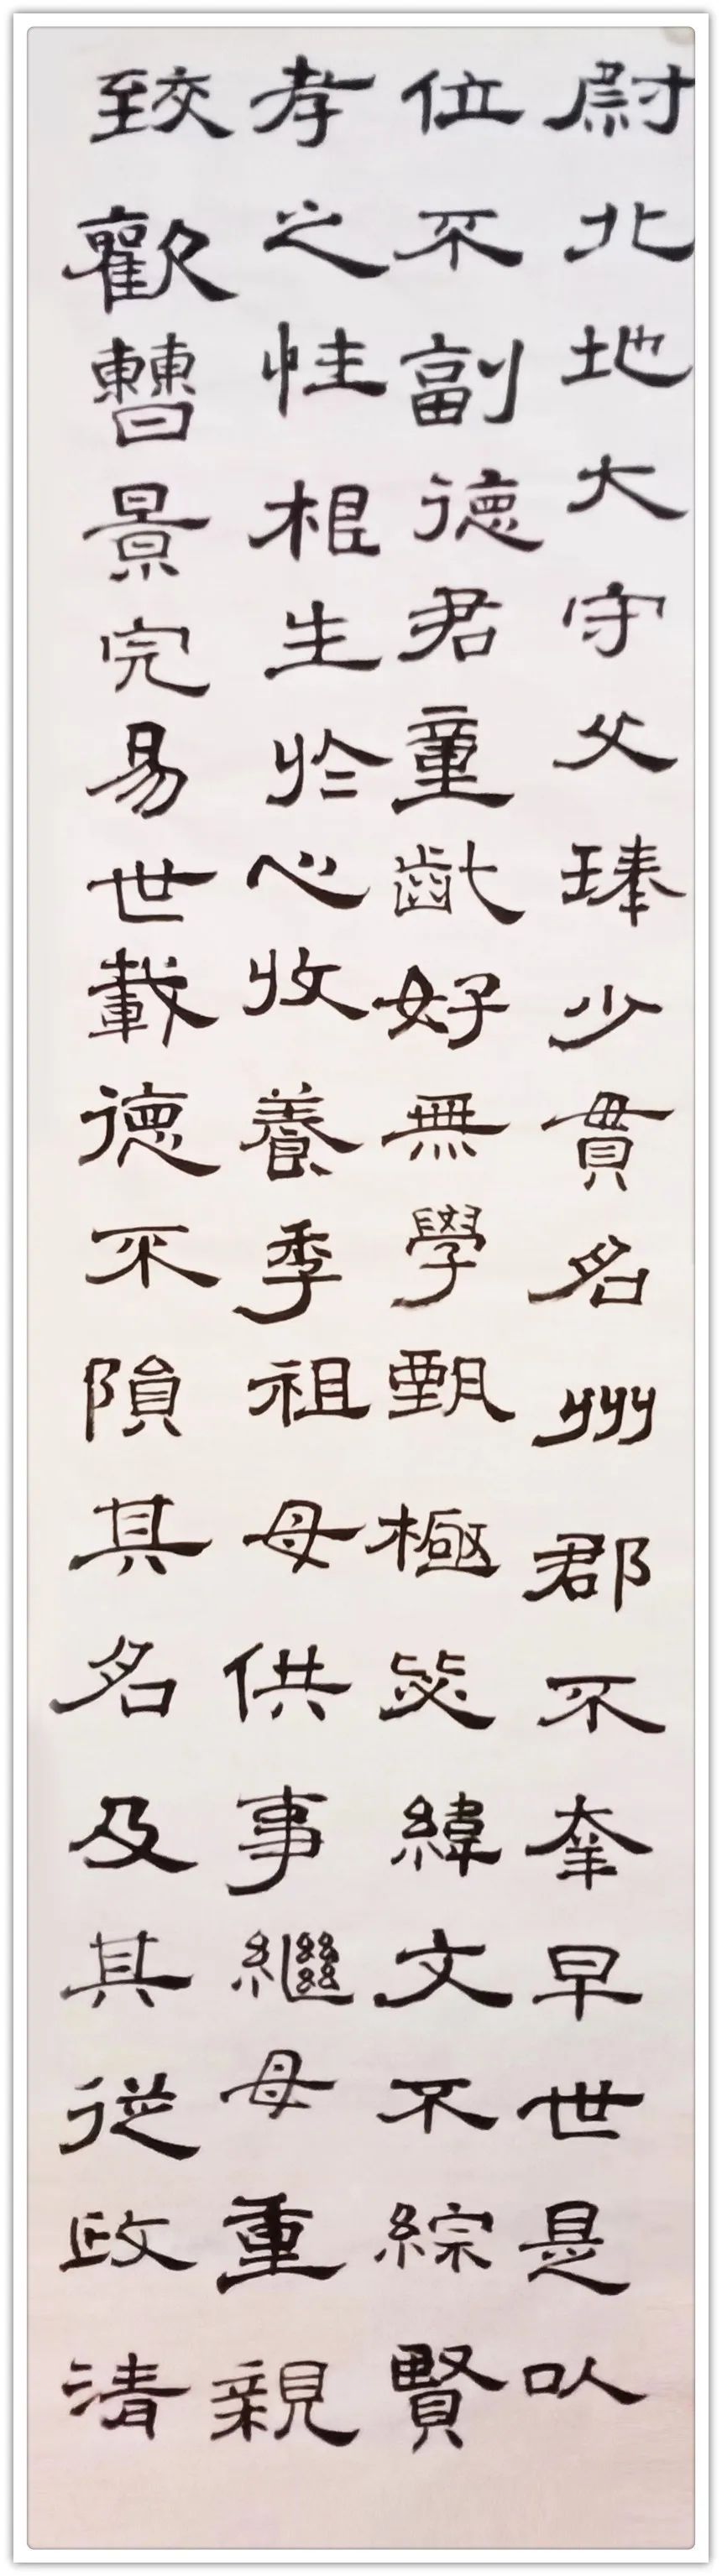 尉北地大守父琫少貫名州郡不幸早世是以
位不副德君童齔好無學甄極毖緯文不綜賢
孝之性根生於心收養季祖母供事繼母重親
致歡曹景完易世載德不隕其名及其從政清